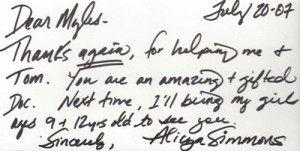 Dear Myles- July 20-07
Thanks again, for helping me +
Tom. You are an amazing + gifted
Doc. Next time, I'll bring my girl
ages 9 + 12yrs old to see you.
Sincerely, Alicya Simmons